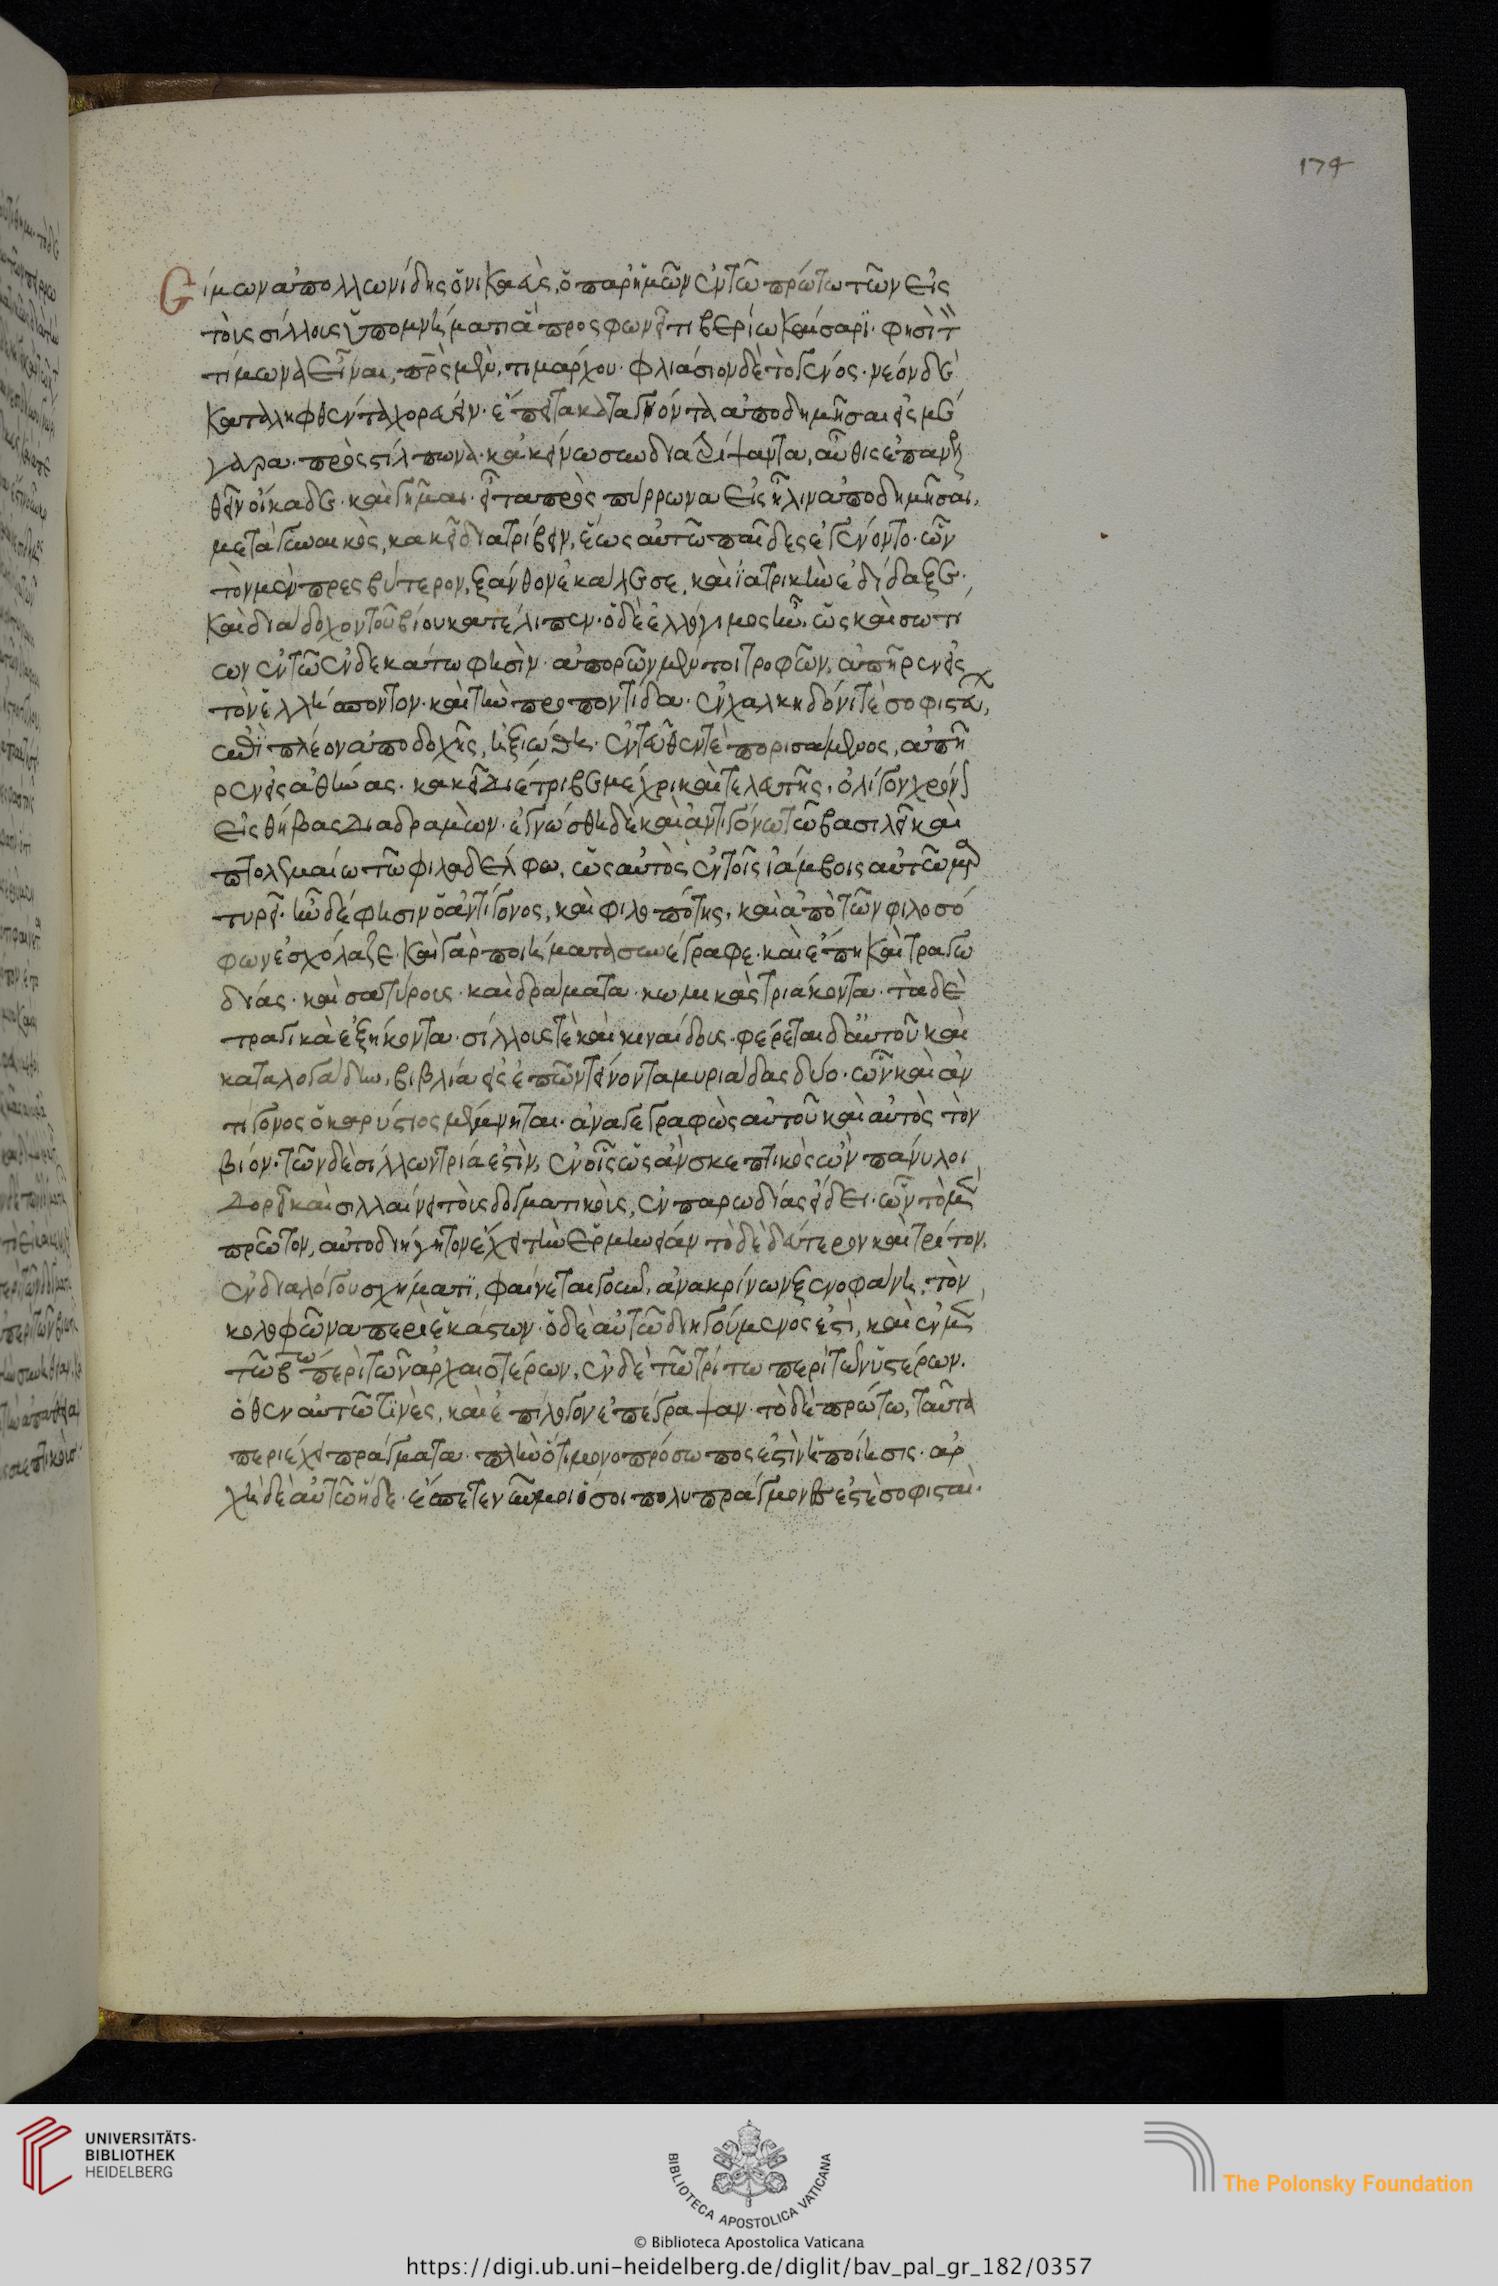 174
Σίμων ἀπολλωνίδης ὁ νικαεὺς, ὁ παρ' ἡμῶν ἐν τῶ πρώτω τῶν εἰς
τοὺς σίλλους ὑπομνήματι ἃ προσφωνεῖ τιβερίω καίσαρι. φησὶ τ
τίμωνα εἶναι, πρς μὲν, τιμάρχου. φλιάσιον δὲ τὸ γένος. νέον δὲ
καταληφθέντα χορεύειν. ἔπειτα καταγνόντα ἀποδημῆσαι εἰς μέ
γαρα. πρὸς στίλπωνα. κἀκείνω συνδιατρίψαντα, αὖθις ἐπανελ
θεῖν οἴκαδε. καὶ γῆμαι. εἶτα πρὸς πύρρωνα εἰς ἦλιν ἀποδημῆσαι,
μετὰ γυναικὸς, κἀκεῖ διατρίβειν, ἕως αὐτῶ παῖδες ἐγένοντο. ὧν
τὸν μὲν πρεσβύτερον, ξάνθον ἐκάλεσε, καὶ ἰατρικὴν ἐδίδαξε.
καὶ διάδοχον τοῦ βίου κατέλιπεν. ὁ δὲ ἐλλόγιμος ἦν, ὡς καὶ σωτί
ων ἐν τῶ ἐνδεκάτω φησὶν. ἀπορῶν μέντοι τροφῶν, ἀπῆρεν εἰς
τὸν ἑλλήσποντον. καὶ τὴν προποντίδα. ἐν χαλκηδόνι τὲ σοφιστεύ
ων ἐπὶ πλέον ἀποδοχῆς, ἠξιώθη. ἐντεῦθεν τὲ πορισάμενος, ἀπῆ
ρεν εἰς ἀθήνας. κἀκεῖ διέτριβε μέχρι καὶ τελευτῆς. ὀλίγον χρόνον
εἰς θήβας διαδραμὼν. ἐγνώσθη δὲ καὶ ἀντιγόνω τῶ βασιλεῖ καὶ
πτολεμαίω τῶ φιλαδέλφω, ὡς αὐτὸς ἐν τοῖς ἰάμβοις αὐτῶ μαρ
τυρεῖ. ἦν δέ φησιν ὁ ἀντίγονος, καὶ φιλοπότης, καὶ ἀπὸ τῶν φιλοσό
φων ἐσχόλαζε. καὶ γὰρ ποιήματα συνέγραφε. καὶ ἔπη καὶ τραγω
δίας. καὶ σατύρους. καὶ δράματα. κωμικὰς τριάκοντα. τὰ δὲ
τραγικὰ ἑξήκοντα. σίλλους τὲ καὶ κιναίδους. φέρεται δ' αὐτοῦ καὶ
καταλογάδην, βιβλία εἰς ἐπῶν τείνοντα μυριάδας δύο. ὧν καὶ ἀν
τίγονος ὁ καρύστιος μέμνηται. ἀναγεγραφὼς αὐτοῦ καὶ αὐτὸς τὸν
βίον. τῶν δὲ σίλλων τρία ἐστὶν, ἐν οἷς ὡς ἂν σκεπτικὸς ὢν πάντα λοι
δορεῖ καὶ σιλλαίνει τοὺς δογματικοὺς, ἐν παρωδίας εἴδει. ὧν τὸ μὲν
πρῶτον, αὐτοδιήγητον ἔχει τὴν ἑρμηνείαν τὸ δὲ δεύτερον καὶ τρίτον,
ἐν διαλόγου σχήματι, φαίνεται γοῦν, ἀνακρίνων ξενοφάνη, τὸν
κολοφῶνα περὶ ἑκάστων. ὁ δὲ αὐτῶ διηγούμενός ἐστὶ, καὶ ἐν μὲν
τῶ β τω περὶ τῶν ἀρχαιοτέρων, ἐν δὲ τῶ τρίτω περὶ τῶν ὑστέρων.
ὅθεν αὐτῶ τινὲς, καὶ ἐπίλογον ἐπέγραψαν. τὸ δὲ πρώτω, ταῦτα
περιέχει πράγματα. πλὴν ὅτι μονοπρόσωπος ἐστὶν ἡ ποίησις. ἀρ
χὴ δὲ αὐτῶ ἥδε. ἔσπετε νῦν μοι ὅσοι πολυπράγμονες ἐστὲ σοφισταὶ.
UNIVERSITÄTS-
BIBLIOTHEK
HEIDELBERG
BIBLIOTECA APOSTOLICA VATICANA
The Polonsky Foundation
© Biblioteca Apostolica Vaticana
https://digi.ub.uni-heidelberg.de/diglit/bav_pal_gr_182/0357